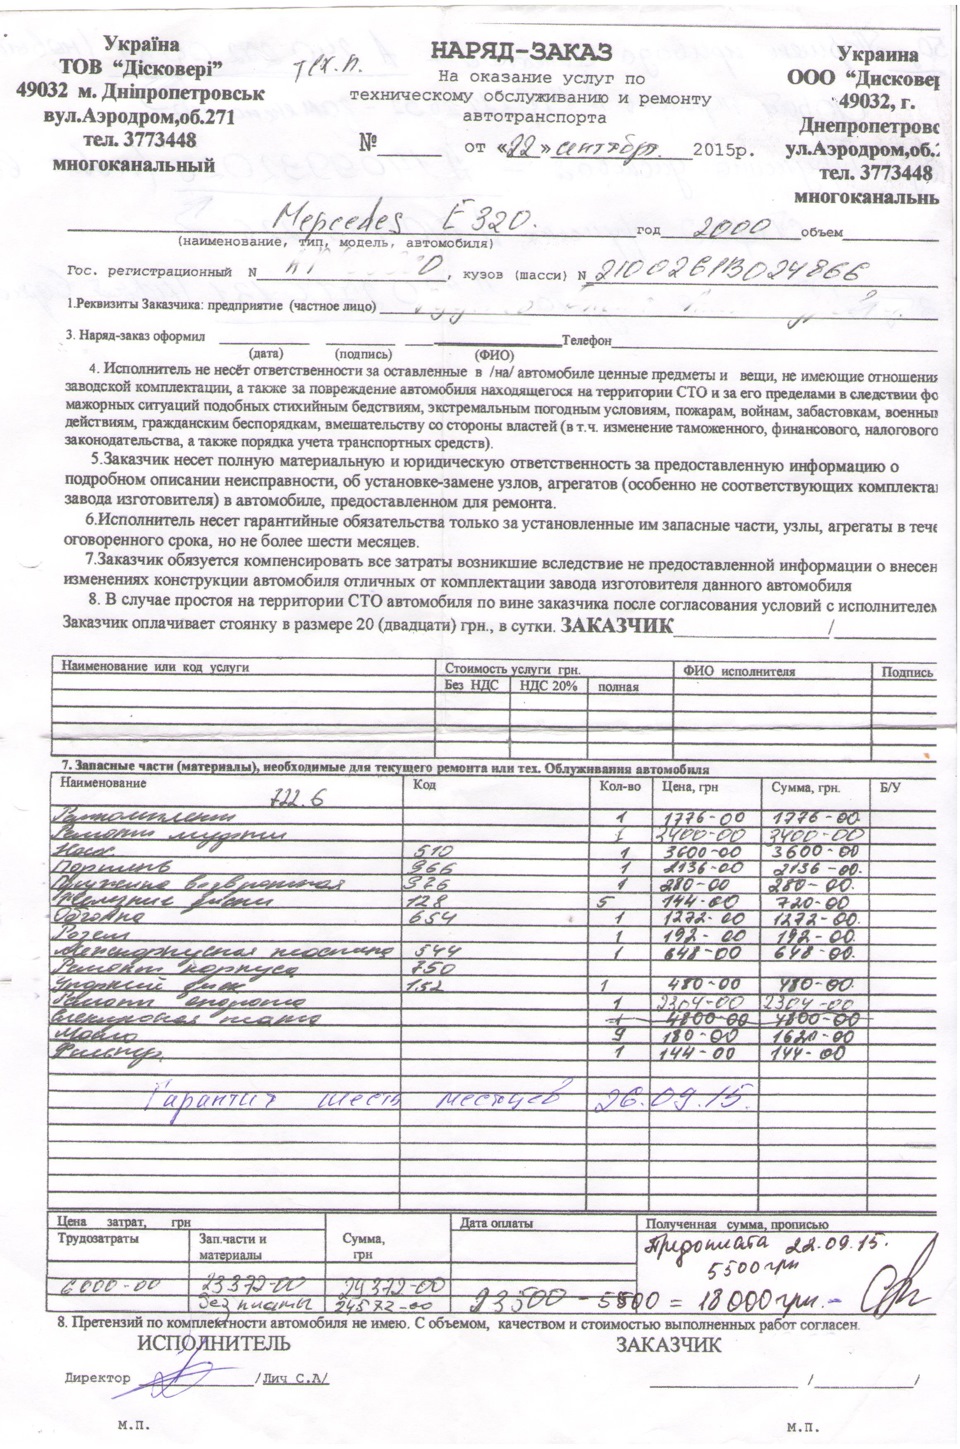 Україна
ТОВ “Дісковері”
49032 м. Дніпропетровськ
вул.Аэродром,об.271
тел. 3773448
многоканальный
тех.п.
НАРЯД-ЗАКАЗ
На оказание услуг по
техническому обслуживанию и ремонту
автотранспорта
№ от «22» сентября 2015р.
Украина
ООО “Дисковер
49032, г.
Днепропетровс
ул.Аэродром,об.2
тел. 3773448
многоканальнь
Mercedes E 320. год 2000 объем
(наименование, тип, модель, автомобиля)
Гос. регистрационный N , кузов (шасси) N 2100261B024866
1.Реквизиты Заказчика: предприятие (частное лицо)
3. Наряд-заказ оформил Телефон
(дата) (подпись) (ФИО)
4. Исполнитель не несёт ответственности за оставленные в /на/ автомобиле ценные предметы и вещи, не имеющие отношения
заводской комплектации, а также за повреждение автомобиля находящегося на территории СТО и за его пределами в следствии фо
мажорных ситуаций подобных стихийным бедствиям, экстремальным погодным условиям, пожарам, войнам, забастовкам, военным
действиям, гражданским беспорядкам, вмешательству со стороны властей (в т.ч. изменение таможенного, финансового, налогового
законодательства, а также порядка учета транспортных средств).
5.Заказчик несет полную материальную и юридическую ответственность за предоставленную информацию о
подробном описании неисправности, об установке-замене узлов, агрегатов (особенно не соответствующих комплекта
завода изготовителя) в автомобиле, предоставленном для ремонта.
6.Исполнитель несет гарантийные обязательства только за установленные им запасные части, узлы, агрегаты в тече
оговоренного срока, но не более шести месяцев.
7.Заказчик обязуется компенсировать все затраты возникшие вследствие не предоставленной информации о внесен
изменениях конструкции автомобиля отличных от комплектации завода изготовителя данного автомобиля
8. В случае простоя на территории СТО автомобиля по вине заказчика после согласования условий с исполнителем
Заказчик оплачивает стоянку в размере 20 (двадцати) грн., в сутки. ЗАКАЗЧИК /
Наименование или код услуги Стоимость услуги грн. ФИО исполнителя Подпись
Без НДС НДС 20% полная
7. Запасные части (материалы), необходимые для текущего ремонта или тех. Облуживания автомобиля
Наименование Код Кол-во Цена, грн Сумма, грн. Б/У
722.6
Ремкомплект 1 1776-00 1776-00
Ремонт муфты 1 3400-00 3400-00
Насос 510 1 3600-00 3600-00
Поршень 966 1 2136-00 2136-00.
Пружина возвратная 976 1 280-00 280-00.
Железные диски 128 5 144-00 720-00
Обгонка 654 1 1272-00 1272-00.
Розем 1 192-00 192-00.
Межкорпусная пластина 544 1 648-00 648-00
Ремонт корпуса 750
Упорный диск 152 1 480-00 480-00.
Ремонт 1 2304-00 2304-00
Электронная плата 1 4800-00 4800-00
Масло 9 180-00 1620-00
Фильтр. 1 144-00 144-00
Гарантия шесть месяцев 26.09.15.
Цена затрат, грн Дата оплаты Полученная сумма, прописью
Трудозатраты Зап.части и материалы Сумма, грн
Предоплата 22.09.15.
5500грн
6000-00 23372-00 29372-00
Без платы 24572-00 23500 - 5500 = 18000грн.-
8. Претензий по комплектности автомобиля не имею. С объемом, качеством и стоимостью выполненных работ согласен.
ИСПОЛНИТЕЛЬ ЗАКАЗЧИК
Директор /Лич С.А/ /
м.п. м.п.